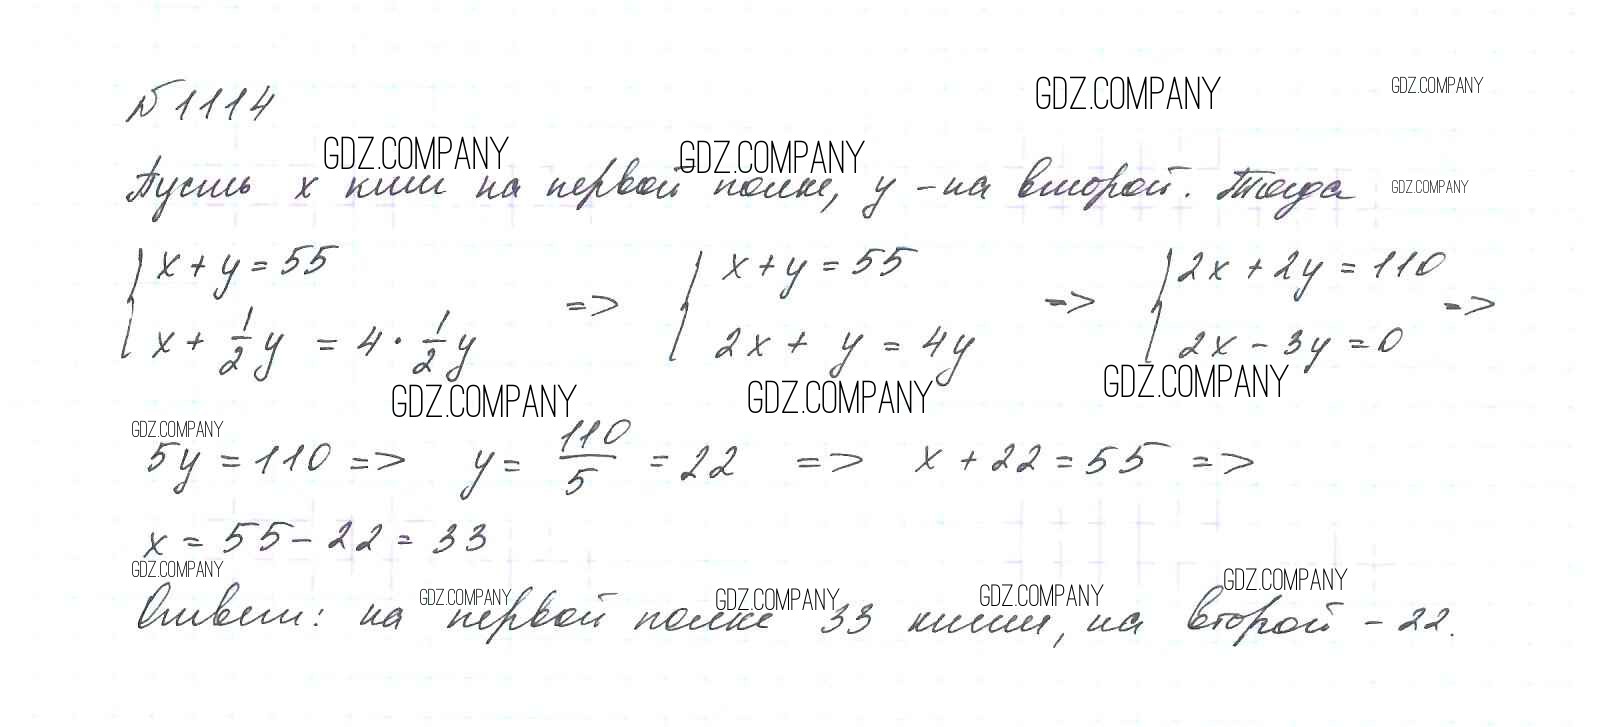 № 1114
GDZ.COMPANY GDZ.COMPANY
GDZ.COMPANY GDZ.COMPANY
Пусть x книг на первой полке, y - на второй. Тогда GDZ.COMPANY
{ x + y = 55 => { x + y = 55 => { 2x + 2y = 110 =>
x + 1/2 y = 4 · 1/2 y 2x + y = 4y 2x - 3y = 0
GDZ.COMPANY GDZ.COMPANY GDZ.COMPANY
GDZ.COMPANY
5y = 110 => y = 110/5 = 22 => x + 22 = 55 =>
x = 55 - 22 = 33
GDZ.COMPANY GDZ.COMPANY GDZ.COMPANY GDZ.COMPANY GDZ.COMPANY
Ответ: на первой полке 33 книги, на второй - 22.